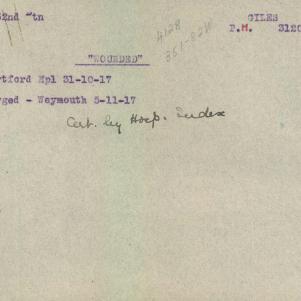 52nd Btn GILES
P.M. 3120
4128
351-82W
"WOUNDED"
rtford Hpl 31-10-17
rged - Weymouth 5-11-17
Cert. by Hosp. Index